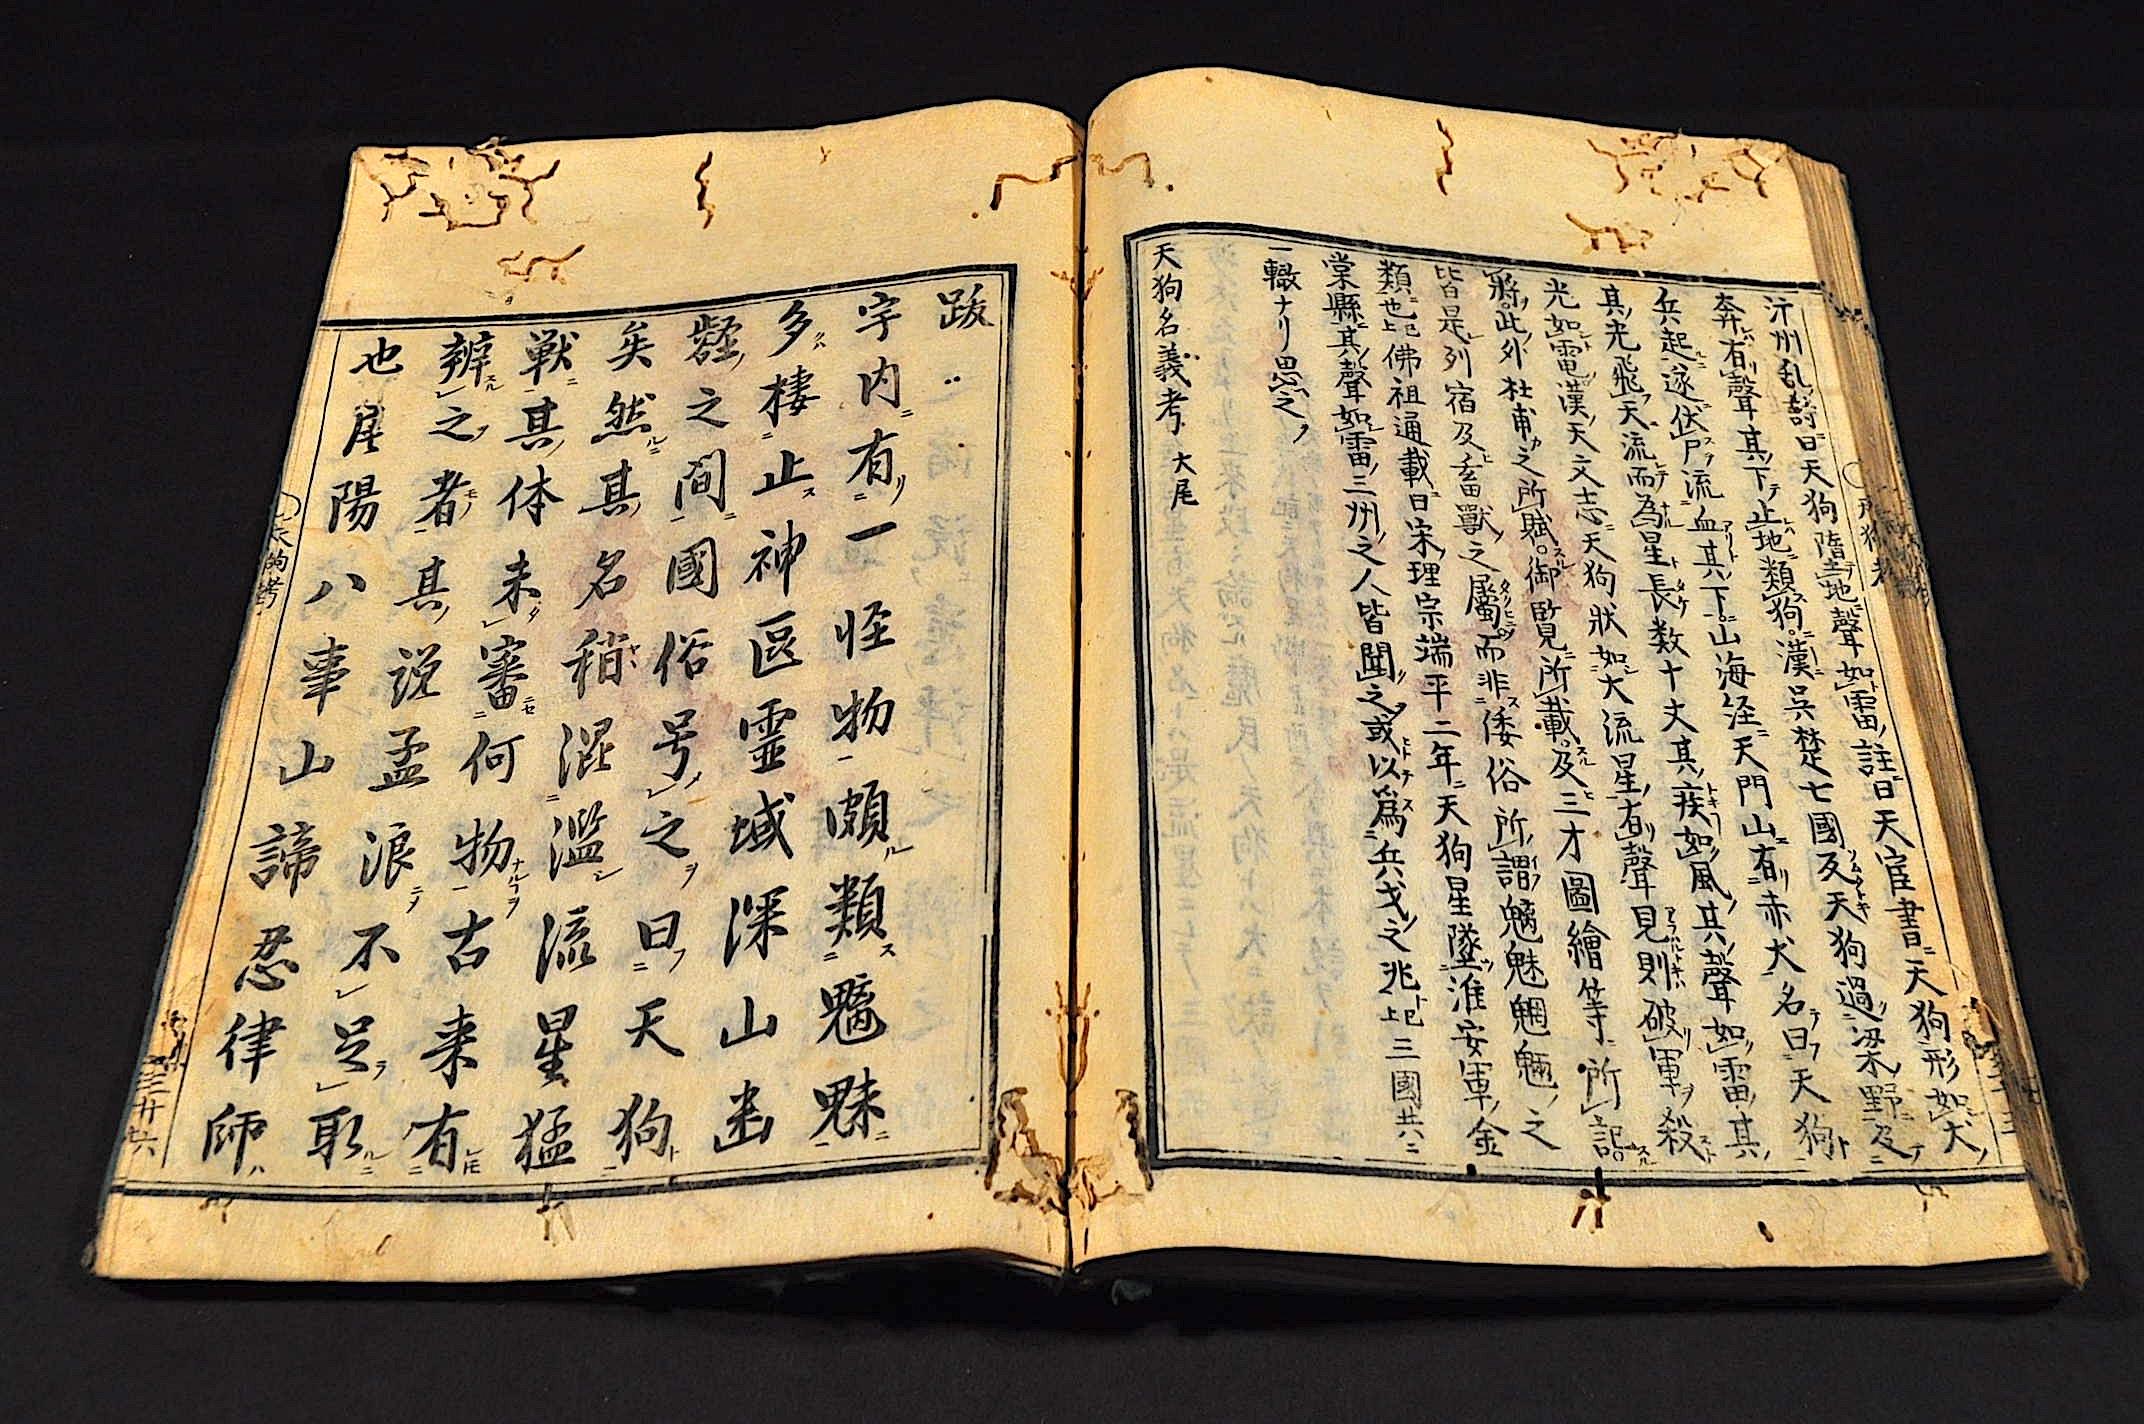 汴州乱詩曰天狗墮地聲如雷註曰天官書天狗形如犬
奔有聲其下止地類狗漢呉楚七國及天狗過梁野及
兵起遂伏尸流血其下山海経天門山有赤犬名曰天狗
其光飛天流而為星長数十丈其疾如風其聲如雷其
光如電漢天文志天狗狀如大流星有聲見則破軍殺
將此外杜甫之所賦御覧所載及三才圖繪等所記
皆是列宿及畜獸之屬而非倭俗所謂魑魅魍魎之
類也佛祖通載曰宋理宗端平二年天狗星墜淮安軍金
棠縣其聲如雷三州之人皆聞之或以為兵戈之兆三國共
一轍ナリ思之
天狗名義考 大尾
跋
宇内有一怪物頗類魑魅
多棲止神區靈域深山幽
壑之間國俗号之曰天狗
矣然其名稍混濫流星猛
獣其体未審何物古来有
辨之者其説孟浪不足取
也
陽八事山諦忍律師